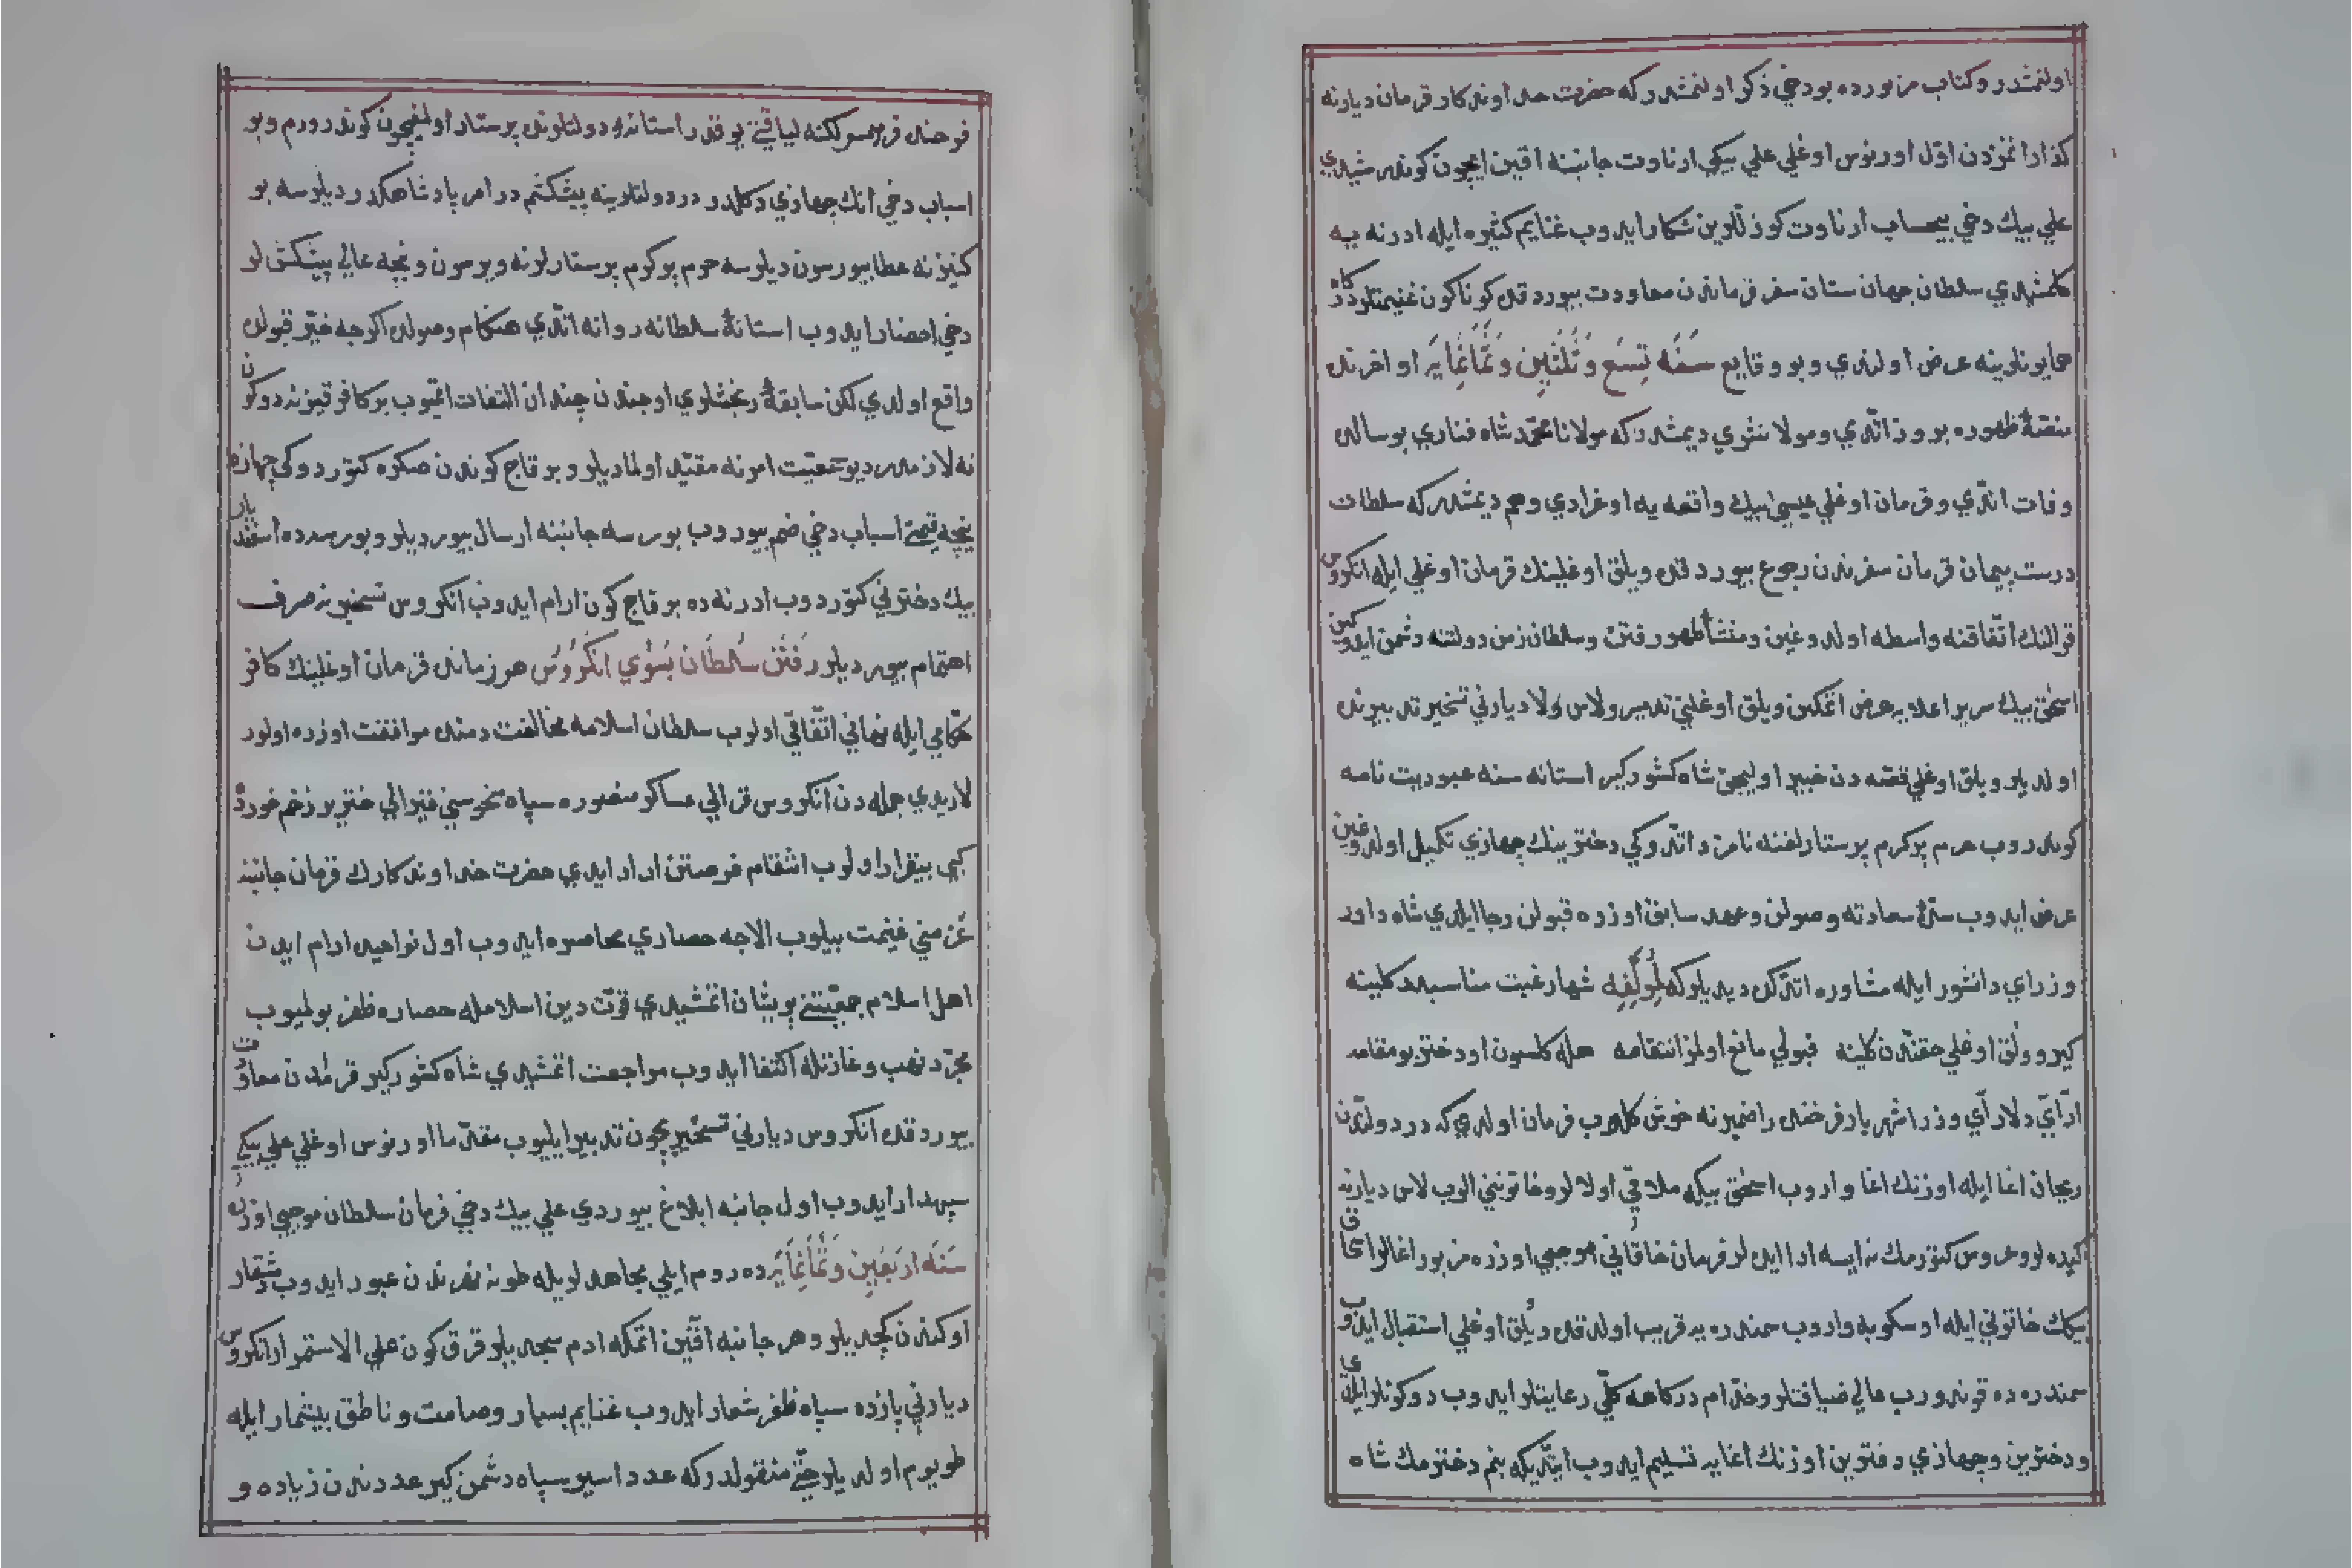 اولنمشدر وكتاب مزبورده بودخي ذكر اولنمشدركه حضرت خداوندكار قرمان ديارنه
كذارا تمزدن اوّل اورنوس اوغلي علي بيكي ارناوت جانبنه اقين ايچون كوندرمشيدي
علي بيك دخي بيحساب ارناوت كوزللرين شكار ايدوب غنايم كثيره ايله ادرنه يه
كلمشيدي سلطان جهان ستان سفر قرماندن معاودت بيوردقده كوناكون غنيمتلر دركاه
همايونلرينه عرض اولندي وبو وقايع سَنَه تِسَع وَثَلَثِين وَثَمَانمَايَه اواخرنده
منصّهٔ ظهوره بروز اتدي ومولا نشري ديمشدركه مولانا محمّد شاه فناري بو سالده
وفات اتدي وقرمان اوغلي عيسي بيك واقعه يه اوغرادي وهم ديمشدركه سلطان
درست پيمان قرمان سفرندن رجوع بيوردقده ويلق اوغلينك قرمان اوغلي ايله انكروس
قرالنك اتّفاقنه واسطه اولدوغين ومنشأ ظهور فتن وسلطان زمن دولتنه دشمن ايدوكين
اسحق بيك سرير اعلايه عرض اتمكين ويلق اوغلني تدمير ولاس ولا ديارني تسخير تدبيرنده
اولديلر ويلق اوغلي قصّه دن خبير اوليجق شاه كشوركير استانه سنه عبوديت نامه
كوندروب حرم پركرم پرستارلغنه نامزد اتدوكي دخترينك جهازي تكميل اولدوغين
عرض ايدوب سدّهٔ سعادته وصولن وعهد سابق اوزره قبولن رجا ايلدي شاه داور
وزراي دانشور ايله مشاوره اتدكده ديديلركه لِمُولّفِه شهارغبت مناسبدر كلينه
كيرو وولق اوغلي حقندن كلينه قبولي مانع اولمز انتقامه هله كلسون او دختر بو مقامه
ارآيي دلاراي وزرا شهريار فرخنده راضميرنه خوش كلوب فرمان اولديكه دردولتدن
ريحان اغا ايله اوزنك اغا واروب اسحق بيكه ملاقي اولالر وخاتونني الوب لاس ديارنه
كيده لر وعروس كتورمك نه ايسه ادا ايدلر فرمان خاقاني موجبي اوزره مزبور اغالر اسحاق
بيك خاتوني ايله اوسكوبه واروب سمندره يه قريب اولدقده ويلق اوغلي استقبال ايدوب
سمندره ده قوندروب عالي ضيافتلر وخدّام دركاهه كلّي رعايتلر ايدوب دوكونلر ايلدي
ودخترين وجهازي دفترين اوزنك اغايه تسليم ايدوب ايتديكه بنم دخترمك شاه
فرخنده فر همسرلكنه لياقتي يوقدر استانهٔ دولتلرنده پرستار اولمغيچون كوندرورم وبو
اسباب دخي انك جهازي دكلدر دردولتلرينه پيشكشم در امر پادشاهكدر ديلرسه بو
كنيزنه عطا بيورسون ديلرسه حرم پركرم پرستارلرنه ويرسون ونيجه عالي پيشكش لر
دخي احضار ايدوب استانهٔ سلطانه روانه اتدي هنكام وصولده اكرچه خيّز قبولده
واقع اولدي لكن سابقهٔ رنجشلري اوجندن چندان التفات اتميوب بركافر قيزنه دوكون
نه لازمدر ديو جمعيّت امرنه مقيّد اولماديلر وبر قاچ كوندن صكره كتوردوكي جهازه
نيجه قيمتي اسباب دخي ضم بيوروب بورسه جانبنه ارسال بيورديلر وبورسه ده اسفنديار
بيك دخترني كتوردوب ادرنه ده بر قاچ كون ارام ايدوب انكروس تسخيرينه صرف
اهتمام بيورديلر رَفتن سُلطَان بَسُوي انكرُوُس هر زمانده قرمان اوغلينك كافر
حكّامي ايله نهاني اتّفاقي اولوب سلطان اسلامه مخالفت دمنده موافقت اوزره اولور
لاريدي جمله دن انكروس قرالي عساكر منصوره سپاه نحوسيني قيرالي خنزير زخم خورده
كبي بيقرار اولوب انتقام فرصتن ارار ايدي حضرت خداوندكارك قرمان جانبنه
عزمني غنيمت بيلوب الاجه حصاري محاصره ايدوب اول نواحيده ارام ايدن
اهل اسلام جمعيّتني پريشان اتمشيدي قوّت دين اسلامله حصاره ظفر بولميوب
مجرّد نهب وغارتله اكتفا ايدوب مراجعت اتمشيدي شاه كشوركير قرماندن معاودت
بيوردقده انكروس ديارني تسخير ايچون تدبير ايليوب مقدّما اورنوس اوغلي علي بيكي
سپهدار ايدوب اول جانبه ابلاغ بيوردي علي بيك دخي فرمان سلطان موجبي اوزره
سَنَه ارَبَعِين وَثَمَانمَايَه ده روم ايلي مجاهدلريله طونه نهرندن عبور ايدوب طمشقار
اوكندن كچديلر وهر جانبه اقين اتمكه ادم صچديلر قرق كون علي الاستمرار انكروس
ديارني پازده سپاه ظفر شعار ايدوب غنايم بسيار وصامت وناطق بيشمار ايله
طويوم اولديلر حتّي منقولدركه عدد اسير سپاه دشمن كير عددندن زياده و